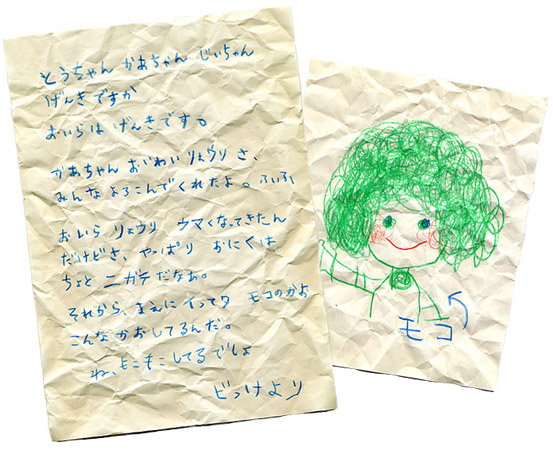 とうちゃん かあちゃん じぃちゃん
げんきですか
おいらは げんきです。
かあちゃん おいわい リょウリ さ、
みんな よろこんでくれたよ。ふぃふ
おいら リょウリ ウマくなってきたん
だけどさ、やっぱり おにくは
ちょと ニガテだなぁ。
それから、まえに イってタ モコのかお
こんなかおしてるんだ。
ね、もこもこしてるでしょ
ビっけより
モコ